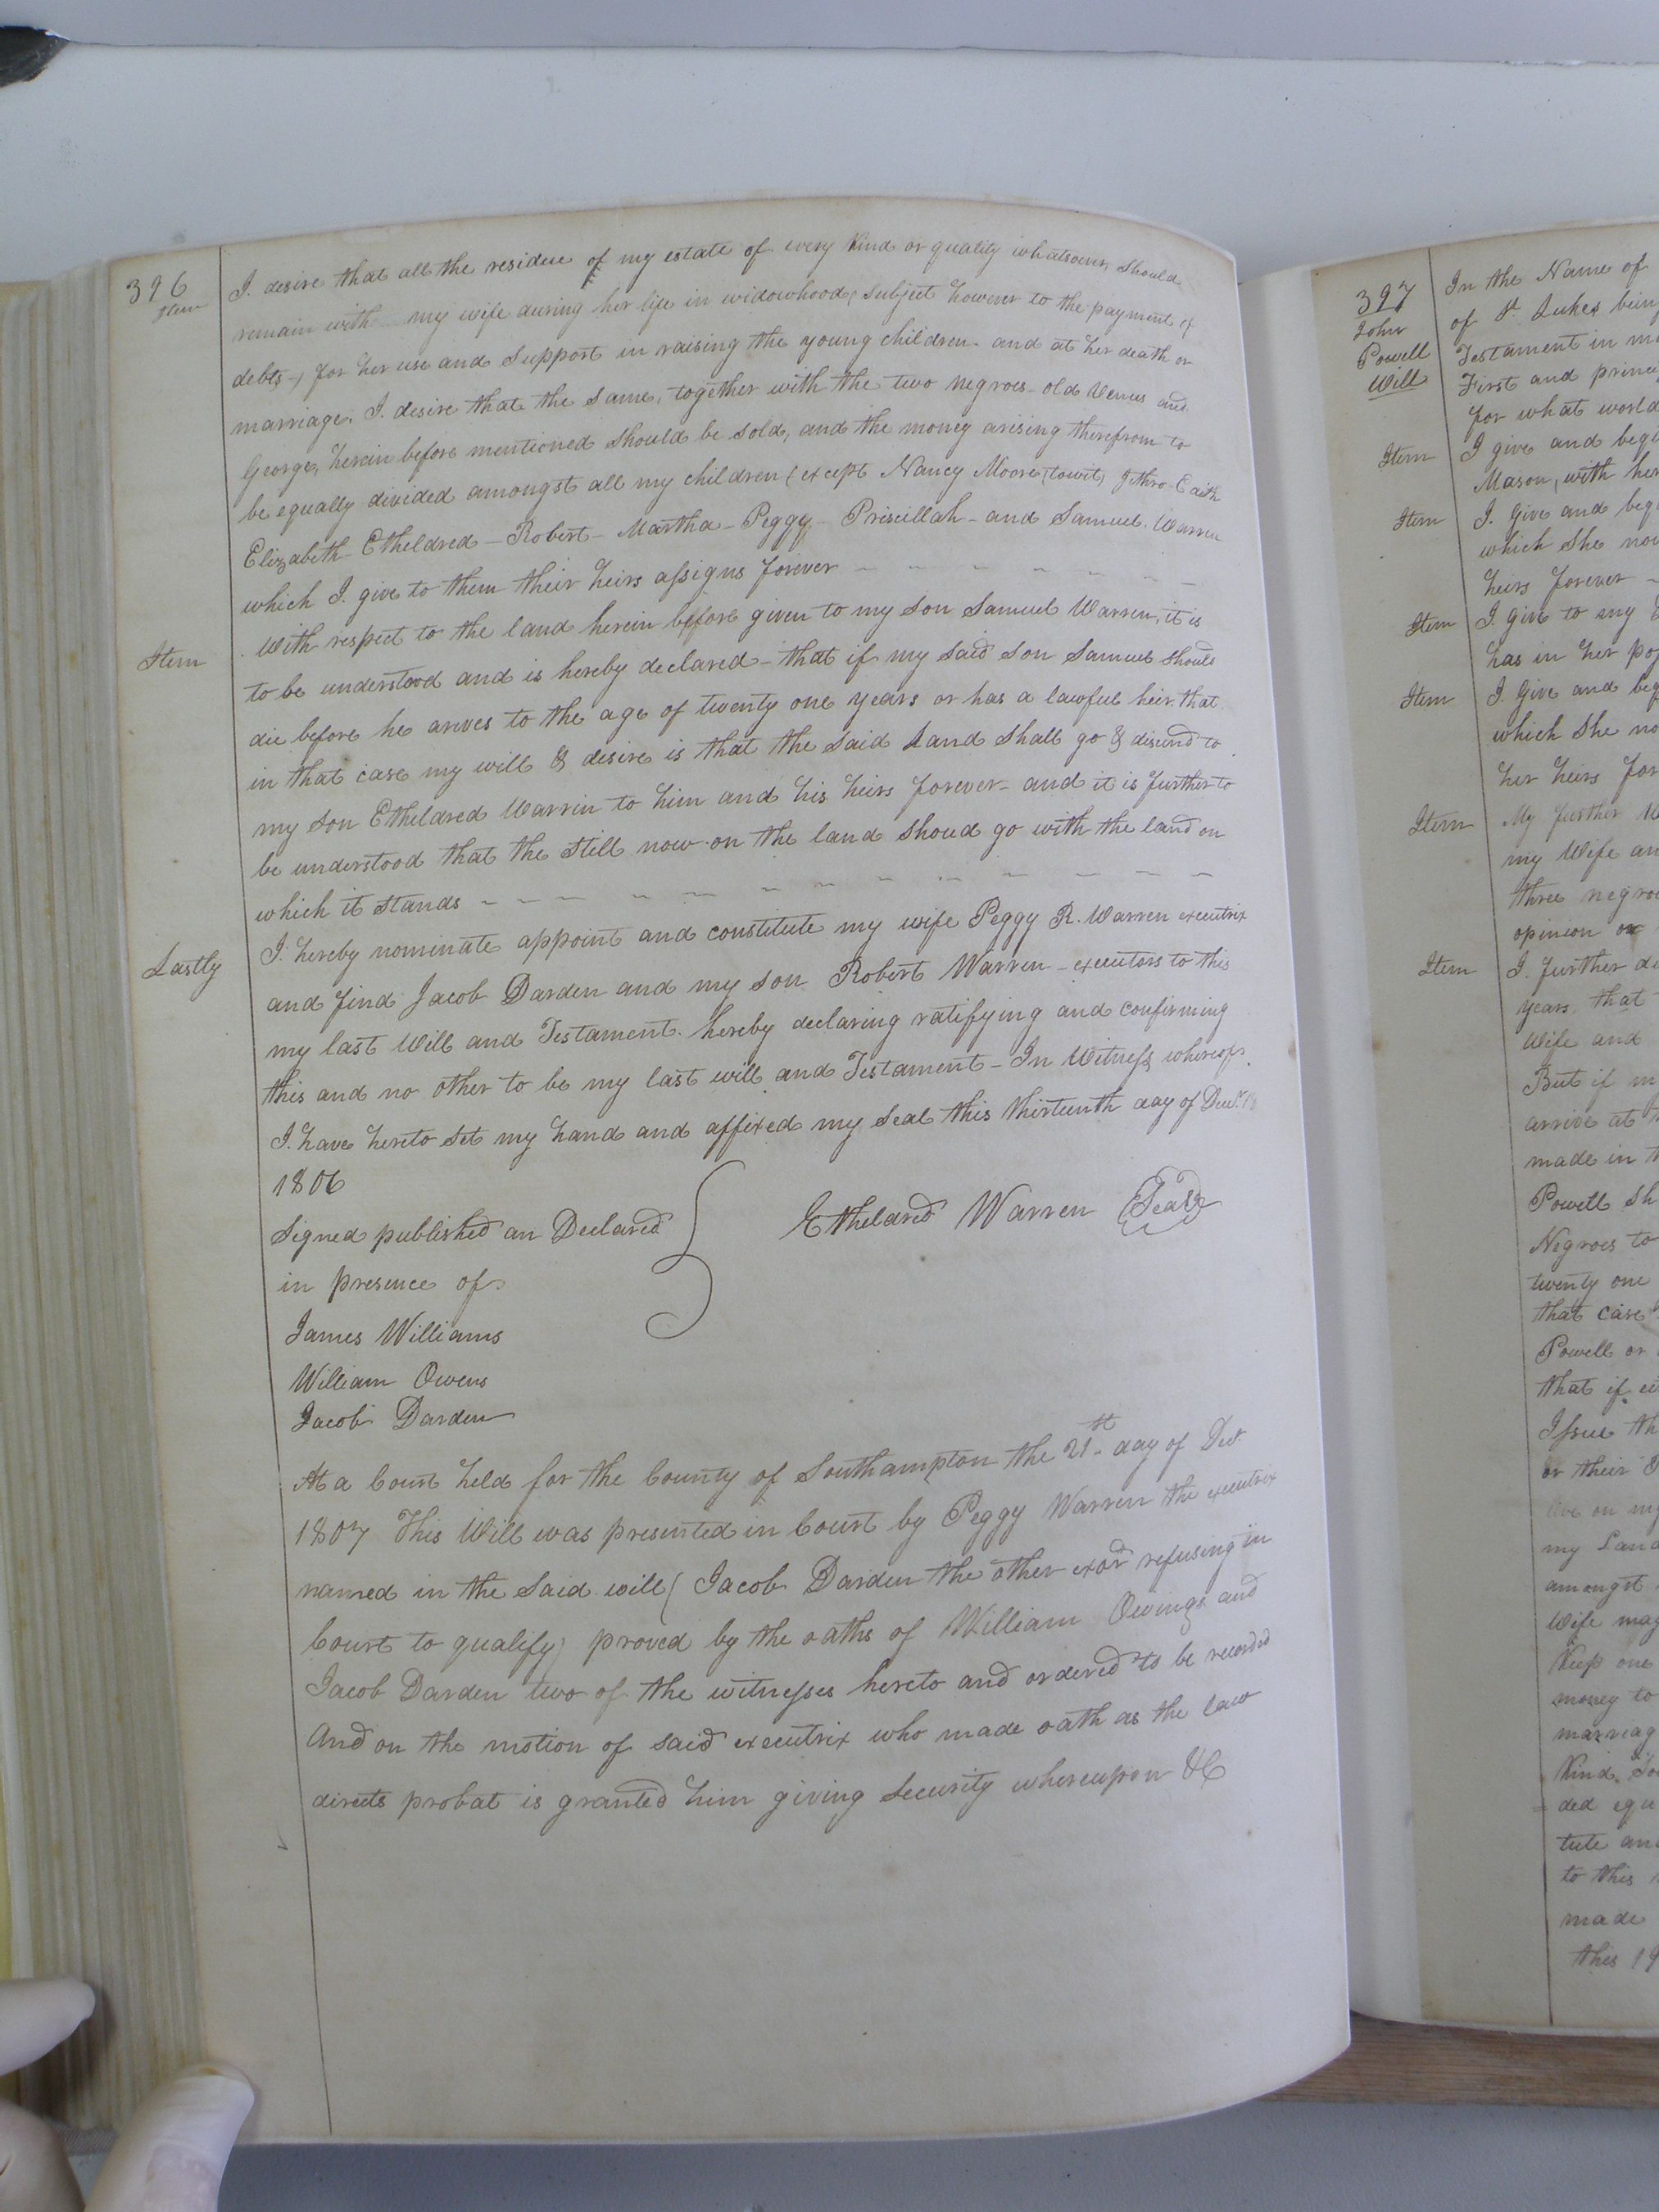 396
Item
I. desire that all the residue of my estate of every kind or quality whatsoever, should
remain with my wife during her life in widowhood, subject however to the payment of
debts, for her use and support in raising the young children and at her death or
marriage. I. desire that the same, together with the two negroes old Venus and
George, herein before mentioned should be sold, and the money arising therefrom to
be equally divided amongst all my children (except Nancy Moore, towit, Jethro Edith
Elizabeth Etheldred - Robert - Martha - Peggy - Priscillah - and Samuel Warren
which I. give to them their heirs assigns forever
Item
With respect to the land herein before given to my son Samuel Warren, it is
to be understood and is hereby declared - that if my said son Samuel should
die before he arives to the age of twenty one years or has a lawful heir, that
in that case my will & desire is that the said land shall go & disend to
my son Etheldred Warrin to him and his heirs forever - and it is further to
be understood that the still now on the land shoud go with the land on
which it stands
Lastly
I. hereby nominate appoint and constitute my wife Peggy R. Warren executrix
and find Jacob Darden and my son Robert Warren - executors to this
my last Will and Testament. hereby declaring ratifying and confirming
this and no other to be my last will and Testament - In Witness whereof
I. have hereto set my hand and affixed my seal this thirteenth day of Decr.
1806
Signed published an Declared
Etheldred Warren Seal
in presence of
James Williams
William Owens
Jacob Darden
At a Court held for the County of Southampton the 21st day of Decr.
1807 This Will was presented in Court by Peggy Warren the executrix
named in the said will (Jacob Darden the other exor refusing in
Court to qualify) proved by the oaths of William Owings and
Jacob Darden two of the witnesses hereto and ordered to be recorded
And on the motion of said executrix who made oath as the law
directs probat is granted him giving security whereupon &C
397
John
Powell
Will
In the Name of
of St. Lukes being
Testament in
First and
for what world
Item
I give and
Mason, with her
Item
I. Give and
which she
heirs forever
Item
I. Give to my
has in her
Item
I. Give and
which she
her heirs
Item
My further
my Wife
three
opinion or
Item
I. further
years, that
Wife and
But if
arrive at
made in
Powell
Negroes to
twenty one
that case
Powell or
that if
Issue
or their
on my
my Land
amongst
Wife may
Keep one
money to
Kind.
ded
tute
to this
made
this 19